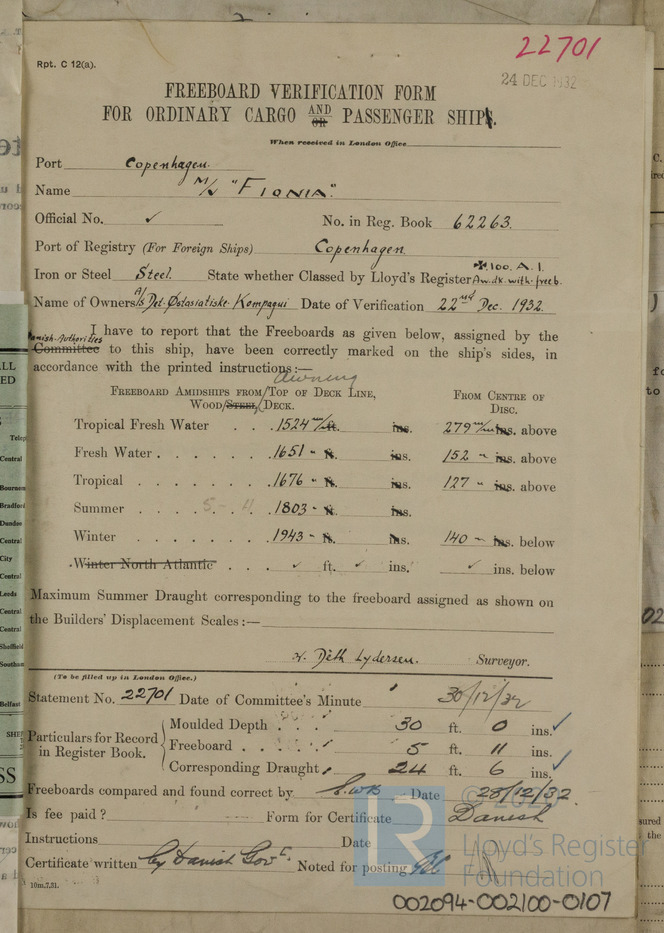 22701
Rpt. C 12(a).
24 DEC 1932
FREEBOARD VERIFICATION FORM
FOR ORDINARY CARGO AND OR PASSENGER SHIPS.
When received in London Office
Port Copenhagen.
Name M/S "FIONIA".
Official No. ✓ No. in Reg. Book 62263.
Port of Registry (For Foreign Ships) Copenhagen
✠ 100. A. 1.
Iron or Steel Steel. State whether Classed by Lloyd's Register Aw. dk. with. freeb.
Name of Owners A/S Det. Østasiatiske. Kompagni Date of Verification 22nd Dec. 1932.
I have to report that the Freeboards as given below, assigned by the
Danish Authorities
Committee to this ship, have been correctly marked on the ship's sides, in
accordance with the printed instructions:—
Awning
FREEBOARD AMIDSHIPS FROM TOP OF DECK LINE, FROM CENTRE OF
WOOD/STEEL/DECK. DISC.
Tropical Fresh Water . . . 1524 m/m ft. ins. 279 m/m ins. above
Fresh Water . . . . . . . 1651 " ft. ins. 152 " ins. above
Tropical . . . . . . . 1676 " ft. ins. 127 " ins. above
Summer . . . . 5 - 11 . 1803 " ft. ins.
Winter . . . . . . . 1943 " ft. ins. 140 " ins. below
Winter North Atlantic . . . ✓ ft. ✓ ins. ✓ ins. below
Maximum Summer Draught corresponding to the freeboard assigned as shown on
the Builders' Displacement Scales :—
Surveyor.
(To be filled up in London Office.)
Statement No. 22701 Date of Committee's Minute 30/12/32
Particulars for Record in Register Book.
Moulded Depth . . . . 30 ft. 0 ins. ✓
Freeboard . . . . 5 ft. 11 ins.
Corresponding Draught 24 ft. 6 ins. ✓
Freeboards compared and found correct by Date 28/12/32.
Is fee paid ? Form for Certificate Danish
Instructions Date
Certificate written by Danish Govt. Noted for posting
10m.7.31.
© 2020
LR
Lloyd's Register
Foundation
002094-002100-0107